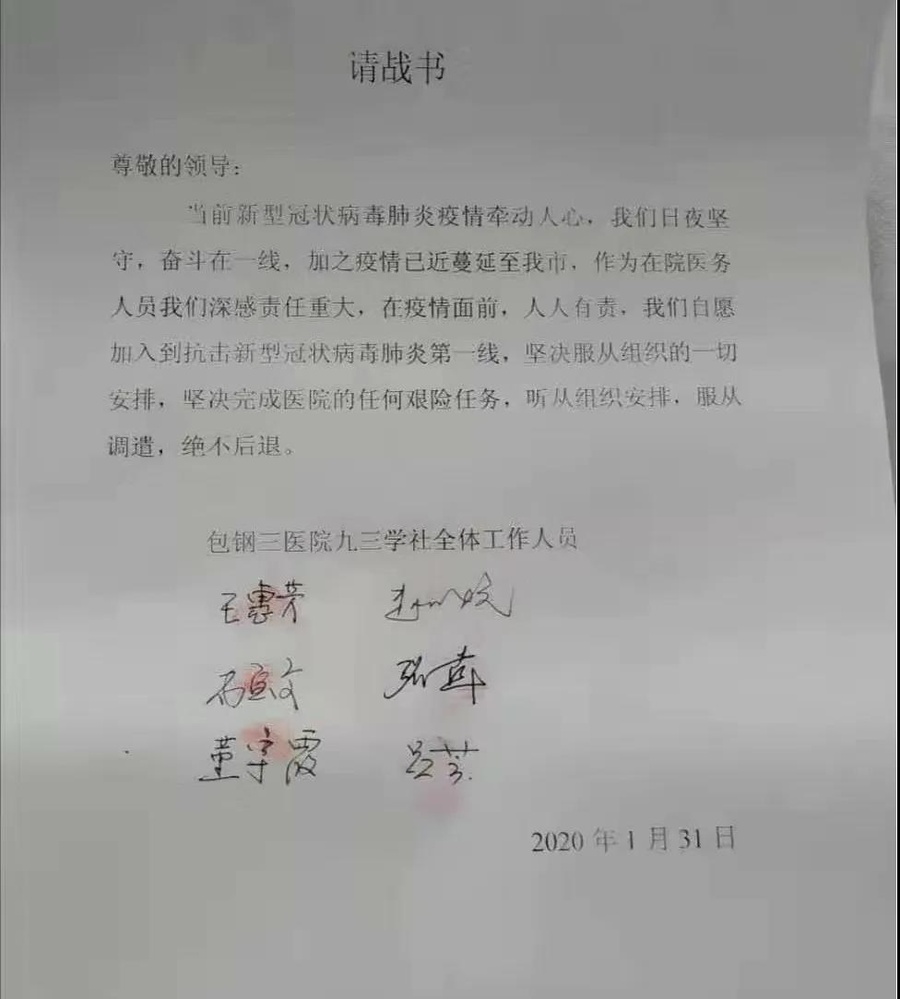 请战书
尊敬的领导:
当前新型冠状病毒肺炎疫情牵动人心，我们日夜坚
守，奋斗在一线，加之疫情已近蔓延至我市，作为在院医务
人员我们深感责任重大，在疫情面前，人人有责，我们自愿
加入到抗击新型冠状病毒肺炎第一线，坚决服从组织的一切
安排，坚决完成医院的任何艰险任务，听从组织安排，服从
调遣，绝不后退。
包钢三医院九三学社全体工作人员
王惠芳
董宇霞 吕芬
2020 年 1 月 31 日